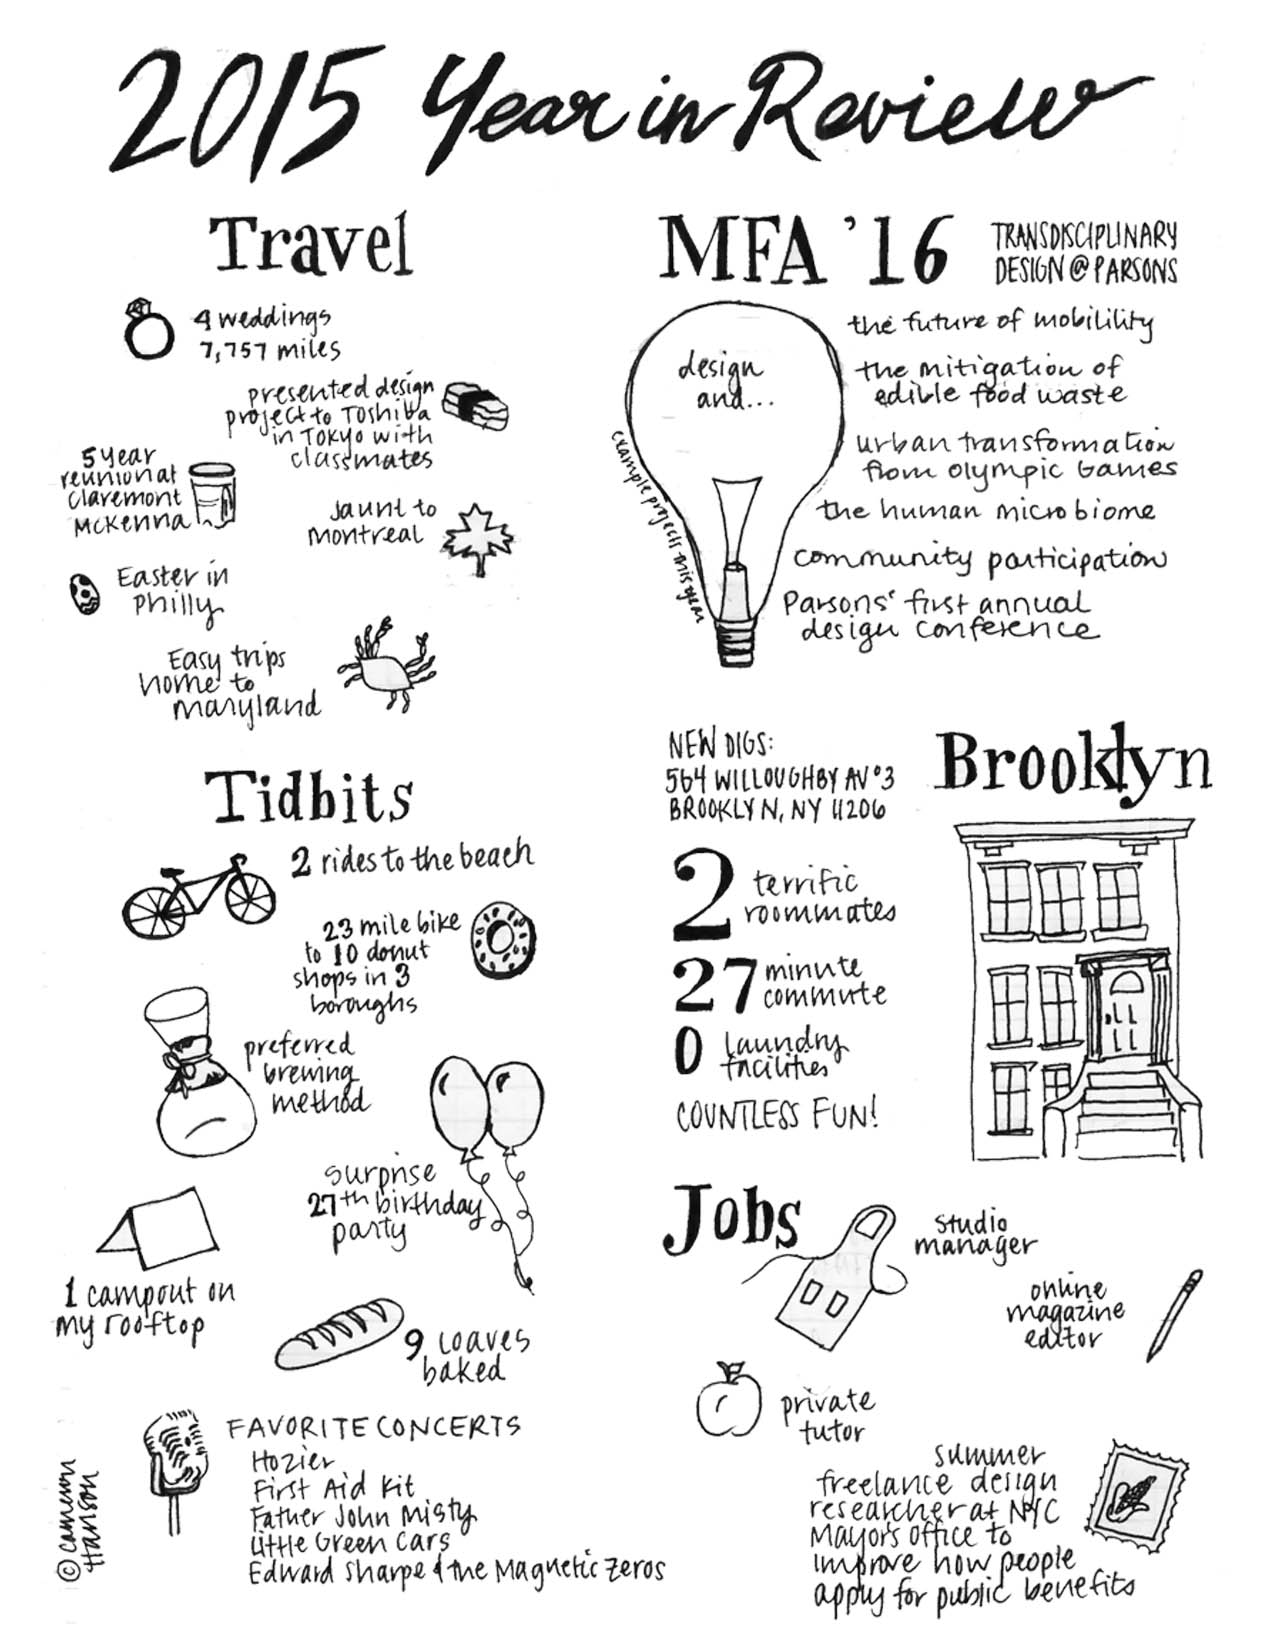 2015 Year in Review
Travel
4 weddings
7,757 miles
presented design
project to Toshiba
in Tokyo with
classmates
5 year
reunion at
Claremont
McKenna
Jaunt to
Montreal
Easter in
Philly
Easy trips
home to
Maryland
MFA '16
TRANSDISCIPLINARY
DESIGN @ PARSONS
design
and...
example projects this year
the future of mobility
the mitigation of
edible food waste
urban transformation
from Olympic Games
the human microbiome
community participation
Parsons' first annual
design conference
Tidbits
2 rides to the beach
23 mile bike
to 10 donut
shops in 3
boroughs
preferred
brewing
method
surprise
27th birthday
party
1 campout on
my rooftop
9 loaves
baked
FAVORITE CONCERTS
Hozier
First Aid Kit
Father John Misty
Little Green Cars
Edward Sharpe & the Magnetic Zeros
© Cameron
Hanson
NEW DIGS:
564 WILLOUGHBY AV #3
BROOKLYN, NY 11206
Brooklyn
2 terrific
roommates
27 minute
commute
0 laundry
facilities
COUNTLESS FUN!
Jobs
studio
manager
online
magazine
editor
private
tutor
summer
freelance design
researcher at NYC
Mayor's Office to
improve how people
apply for public benefits